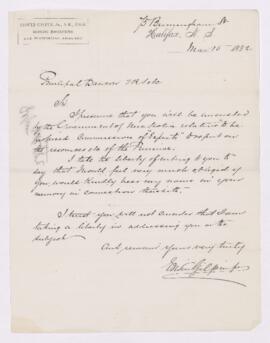 EDWIN GILPIN, Jr., A.M., F.G.S.
MINING ENGINEER
75 Birmingham St
Halifax, N. S
Mar 10th 1882
Principal Dawson FRS etc
Sir
I presume that you will be consulted
by the Government of relative to the
proposed Commission of to report on the
resources of the Province.
I take the liberty of writing to you to
say that I would feel very much obliged if
you would kindly bear my name in your
memory in connection therewith.
I trust you will not consider that I am
taking a liberty in addressing you on the
subject
And remain yours very truly
Edwin Gilpin Jr.